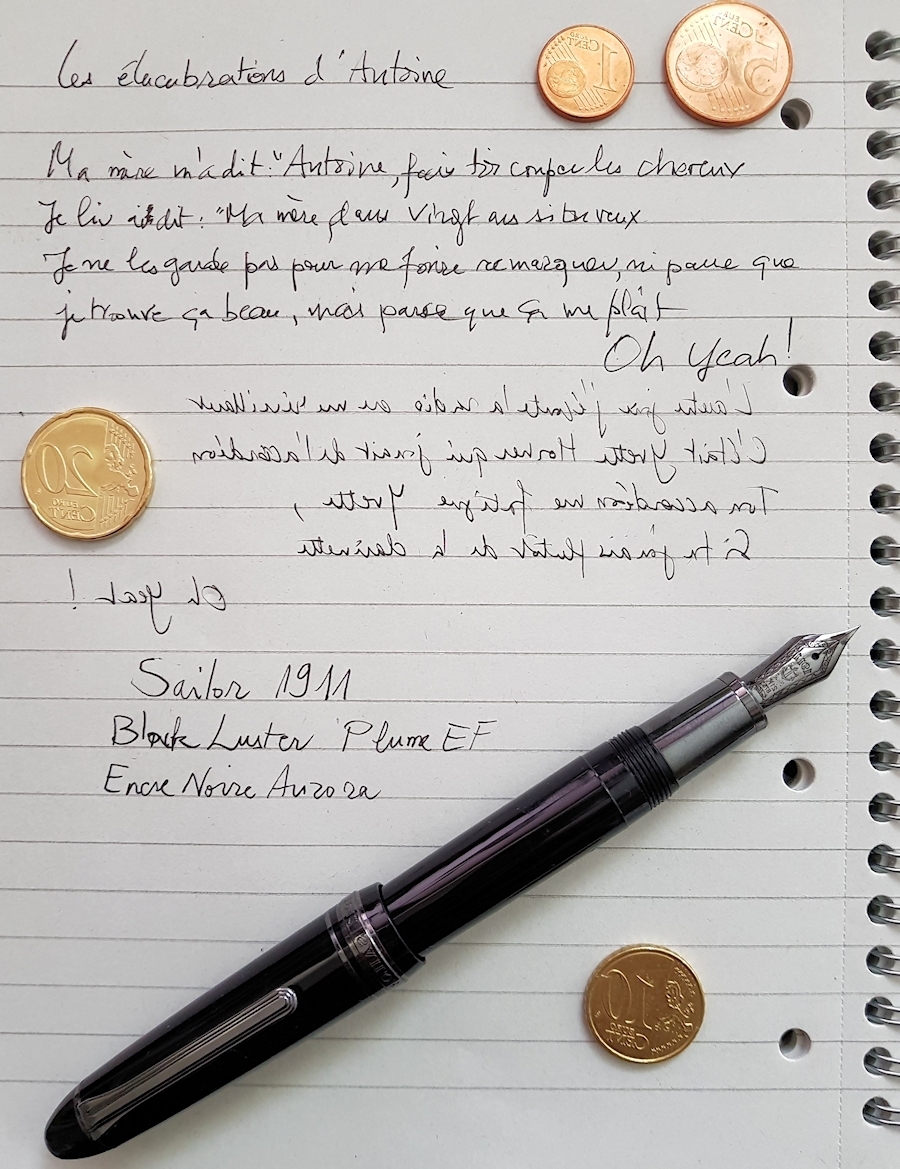 1 EURO CENT
5 EURO CENT
Les élucubrations d'Antoine
Ma mère m'a dit : "Antoine, fais toi couper les cheveux
Je lui ai dit : "Ma mère, dans vingt ans si tu veux
Je ne les garde pas pour me faire remarquer, ni parce que
je trouve ça beau, mais parce que ça me plaît
Oh Yeah !
L'autre jour j'écoute la radio en me réveillant
C'était Yvette Horner qui jouait de l'accordéon
Ton accordéon me fatigue Yvette,
Si tu jouais plutôt de la clarinette
Oh Yeah !
20 EURO CENT
Sailor 1911
Black Luster Plume EF
Encre Noire Aurora
10 EURO CENT